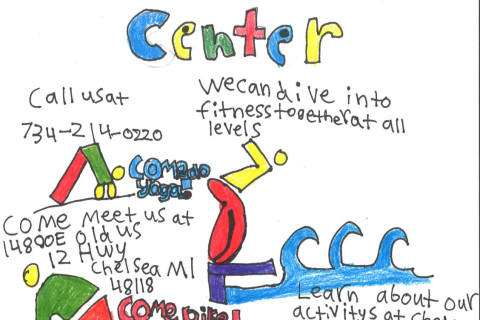 Center
Call us at
734-214-0220
We can dive into
fitness together at all
levels
COME do
Yoga!
COME Meet us at
14800E Old US
12 Hwy
Chelsea MI
48118
COME
Bike!
Learn about our
activitys at